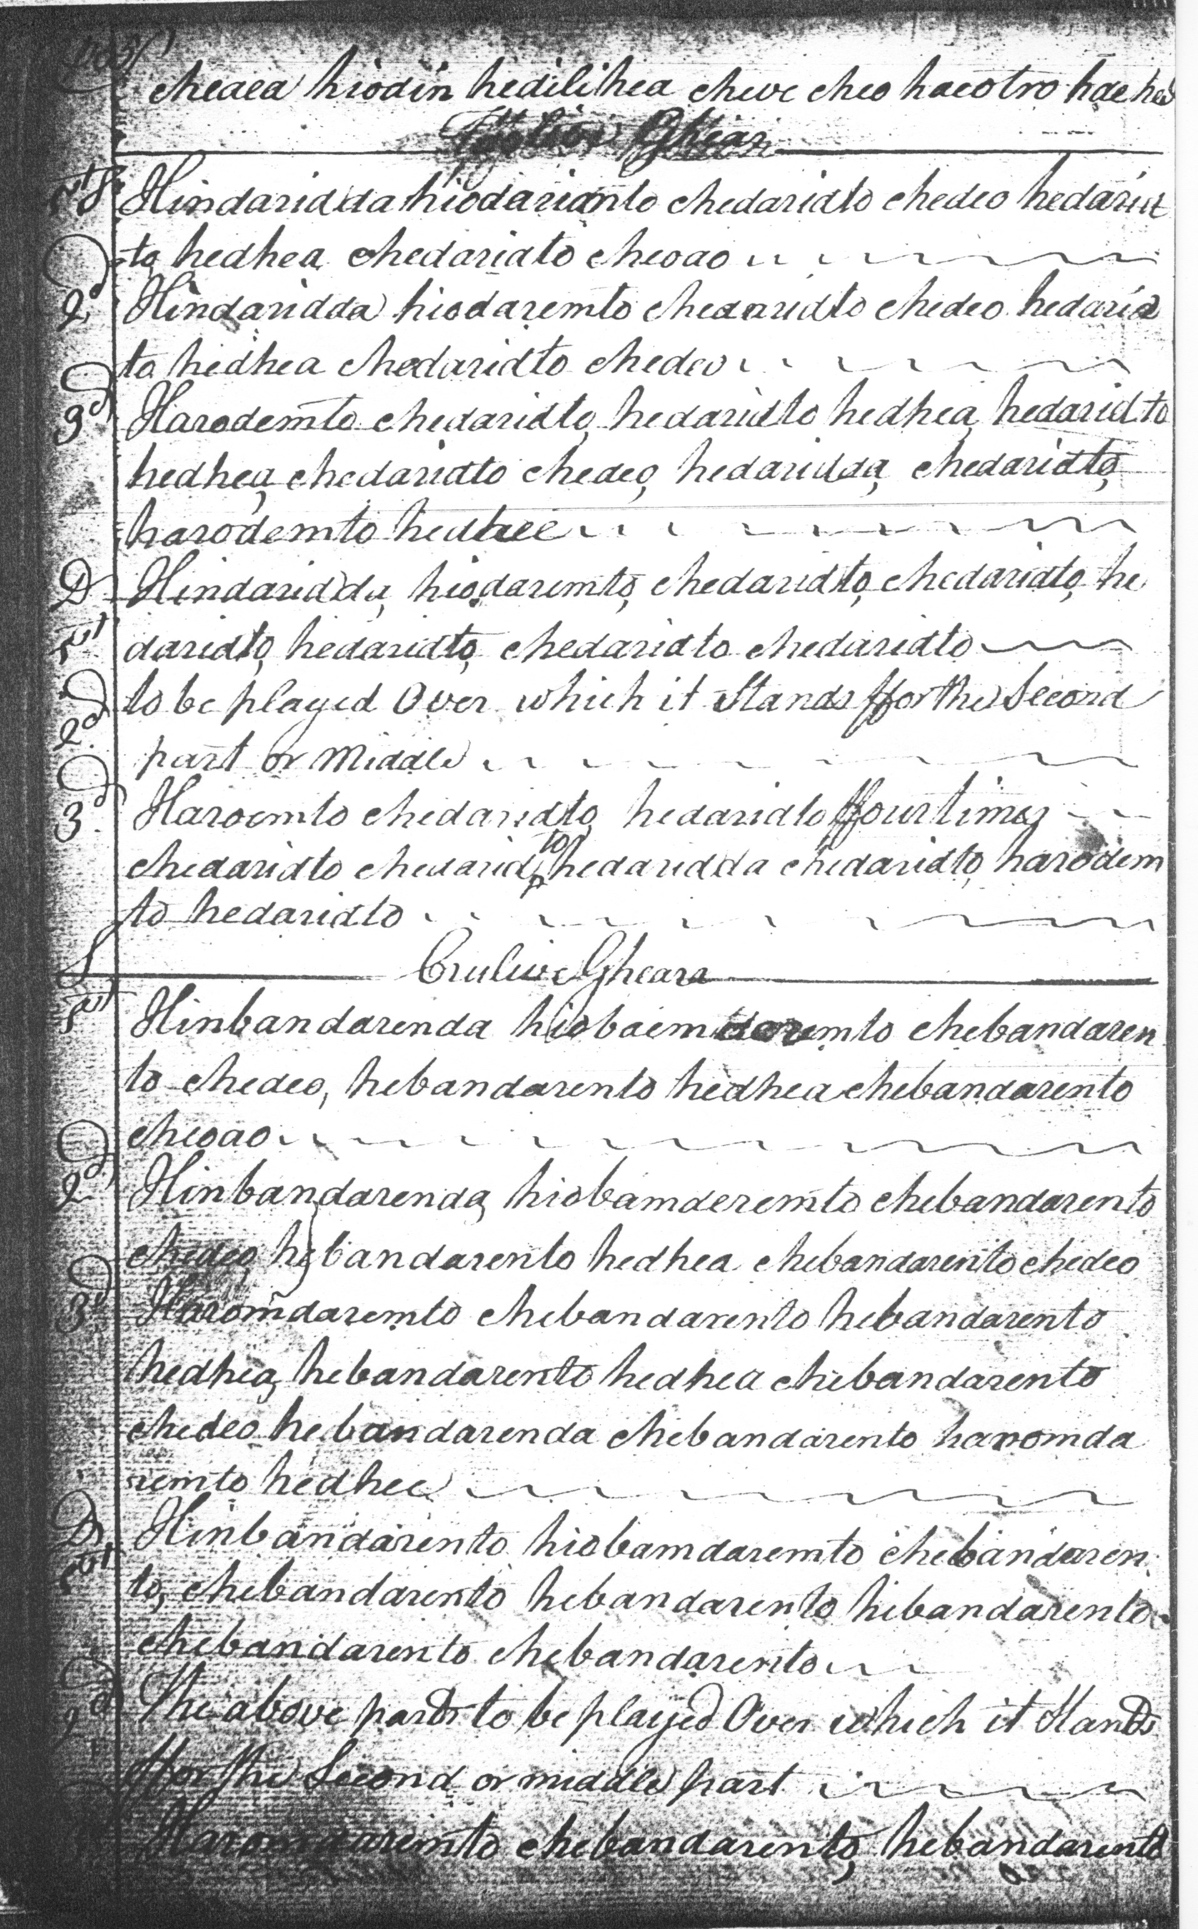 cheaea hiodin hedilihea cheve cheo haeotro hae hea
1st Hindaridda hiodarianto chedaridto chedeo hedarid
to hedhea chedaridto cheoao
2d Hindaridda hiodaremto chedaridto chedeo hedarid
to hedhea chedaridto chedeo
3d Harodemto chedaridto, hedaridto hedhea, hedarid to
hedhea, chedaridto chedeo, hedaridda, chedaridto,
harodemto hedhee
D Hindaridda, hiodaremto, chedaridto, chedaridto, he
1st daridto, hedaridto, chedaridto chedaridto
2d to be played Over which it Stands ffor the Second
part or Middle
3d Haroemto chedaridto, hedaridto ffour times
chedaridto chedarid to hedaridda chedaridto, harodem
to hedaridto
Crulive Gheara
1st Hinbandarenda hiobaemdaremto chebandaren
to chedeo, hebandarento hedhea chebandarento
cheoao
2d Hinbandarenda, hiobamderemto chebandarento
chedeo, hebandarento hedhea chebandarento chedeo
3d Haromdaremto chebandarento hebandarento
hedhea, hebandarento hedhea chebandarento
chedeo hebandarenda chebandarento haromda
remto hedhee
D Hinbandarento hiobamdaremto chebandaren
1st to, chebandarento hebandarento hebandarento
chebandarento chebandarento
2d The above parts to be played Over which it Stands
ffor the Second or middle part
Haromdaremto chebandarento, hebandarento